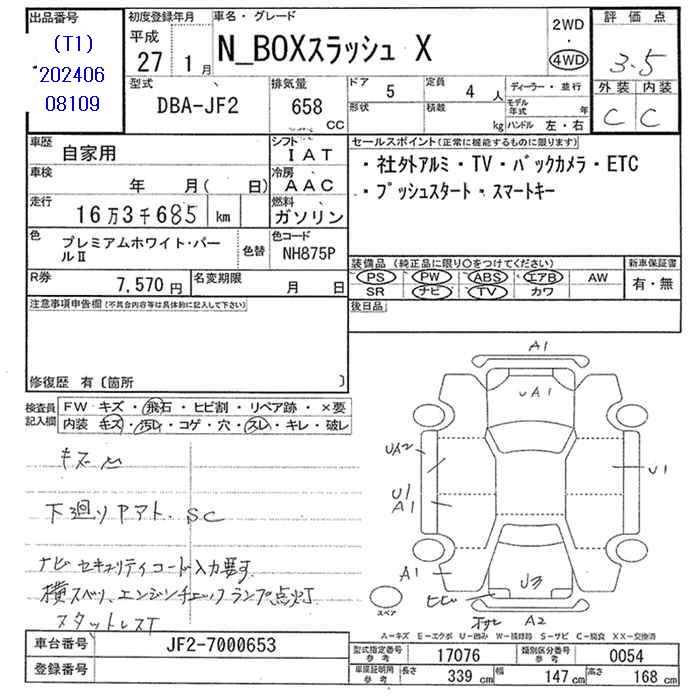 出品番号
(T1)
202406
08109
初度登録年月
平成
27 1月
車名・グレード
N_BOXスラッシュ X
2WD
・
4WD
評価点
3.5
外装 内装
C C
型式
DBA-JF2
排気量
658
CC
ドア
5
定員
4人
ディーラー・並行
形状
積載
kg
モデル年式 年
ハンドル 左・右
車歴
自家用
シフト
IAT
車検
年 月( 日)
冷房
AAC
走行
16万3千685 km
燃料
ガソリン
色
プレミアムホワイト・パールⅡ
色替
色コード
NH875P
R券
7,570円
名変期限
月 日
セールスポイント(正常に機能するものに限ります)
・社外アルミ・TV・バックカメラ・ETC
・プッシュスタート・スマートキー
装備品(純正品に限り○をつけてください)
PS PW ABS エアB AW
SR ナビ TV カワ
新車保証書
有・無
後日品
注意事項申告欄(不具合内容等は具体的に記入して下さい)
修復歴 有〔箇所 〕
検査員記入欄
FW キズ・飛石・ヒビ割・リペア跡・×要
内装 キズ・汚レ・コゲ・穴・スレ・キレ・破レ
下廻りPアト. SC
ナビセキュリティコード入力要す
横スベリ、エンジンチェックランプ点灯
スタットレスT
A1
UA1
UA2
U1
A1
U1
A1
U3
ヒビ
A2
スペア
A-キズ E-エクボ U-凹み W-補修跡 S-サビ C-腐食 XX-交換済
車台番号
JF2-7000653
登録番号
型式指定番号
参考
17076
類別区分番号
参考
0054
車庫証明用
参考
長さ 339 cm 幅 147 cm 高さ 168 cm